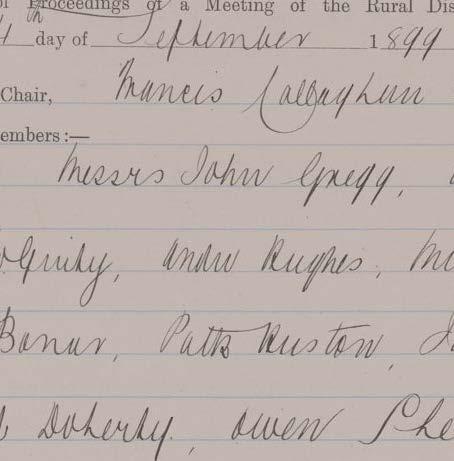 of Proceedings of a Meeting of the Rural Dis
4th day of September 1899
Chair, Francis Callaghan
embers:—
Messrs John Gregg,
Ginity, Andw Hughes, Mi
Bonar, Patk Ruston, J
Doherty, Owen Phe